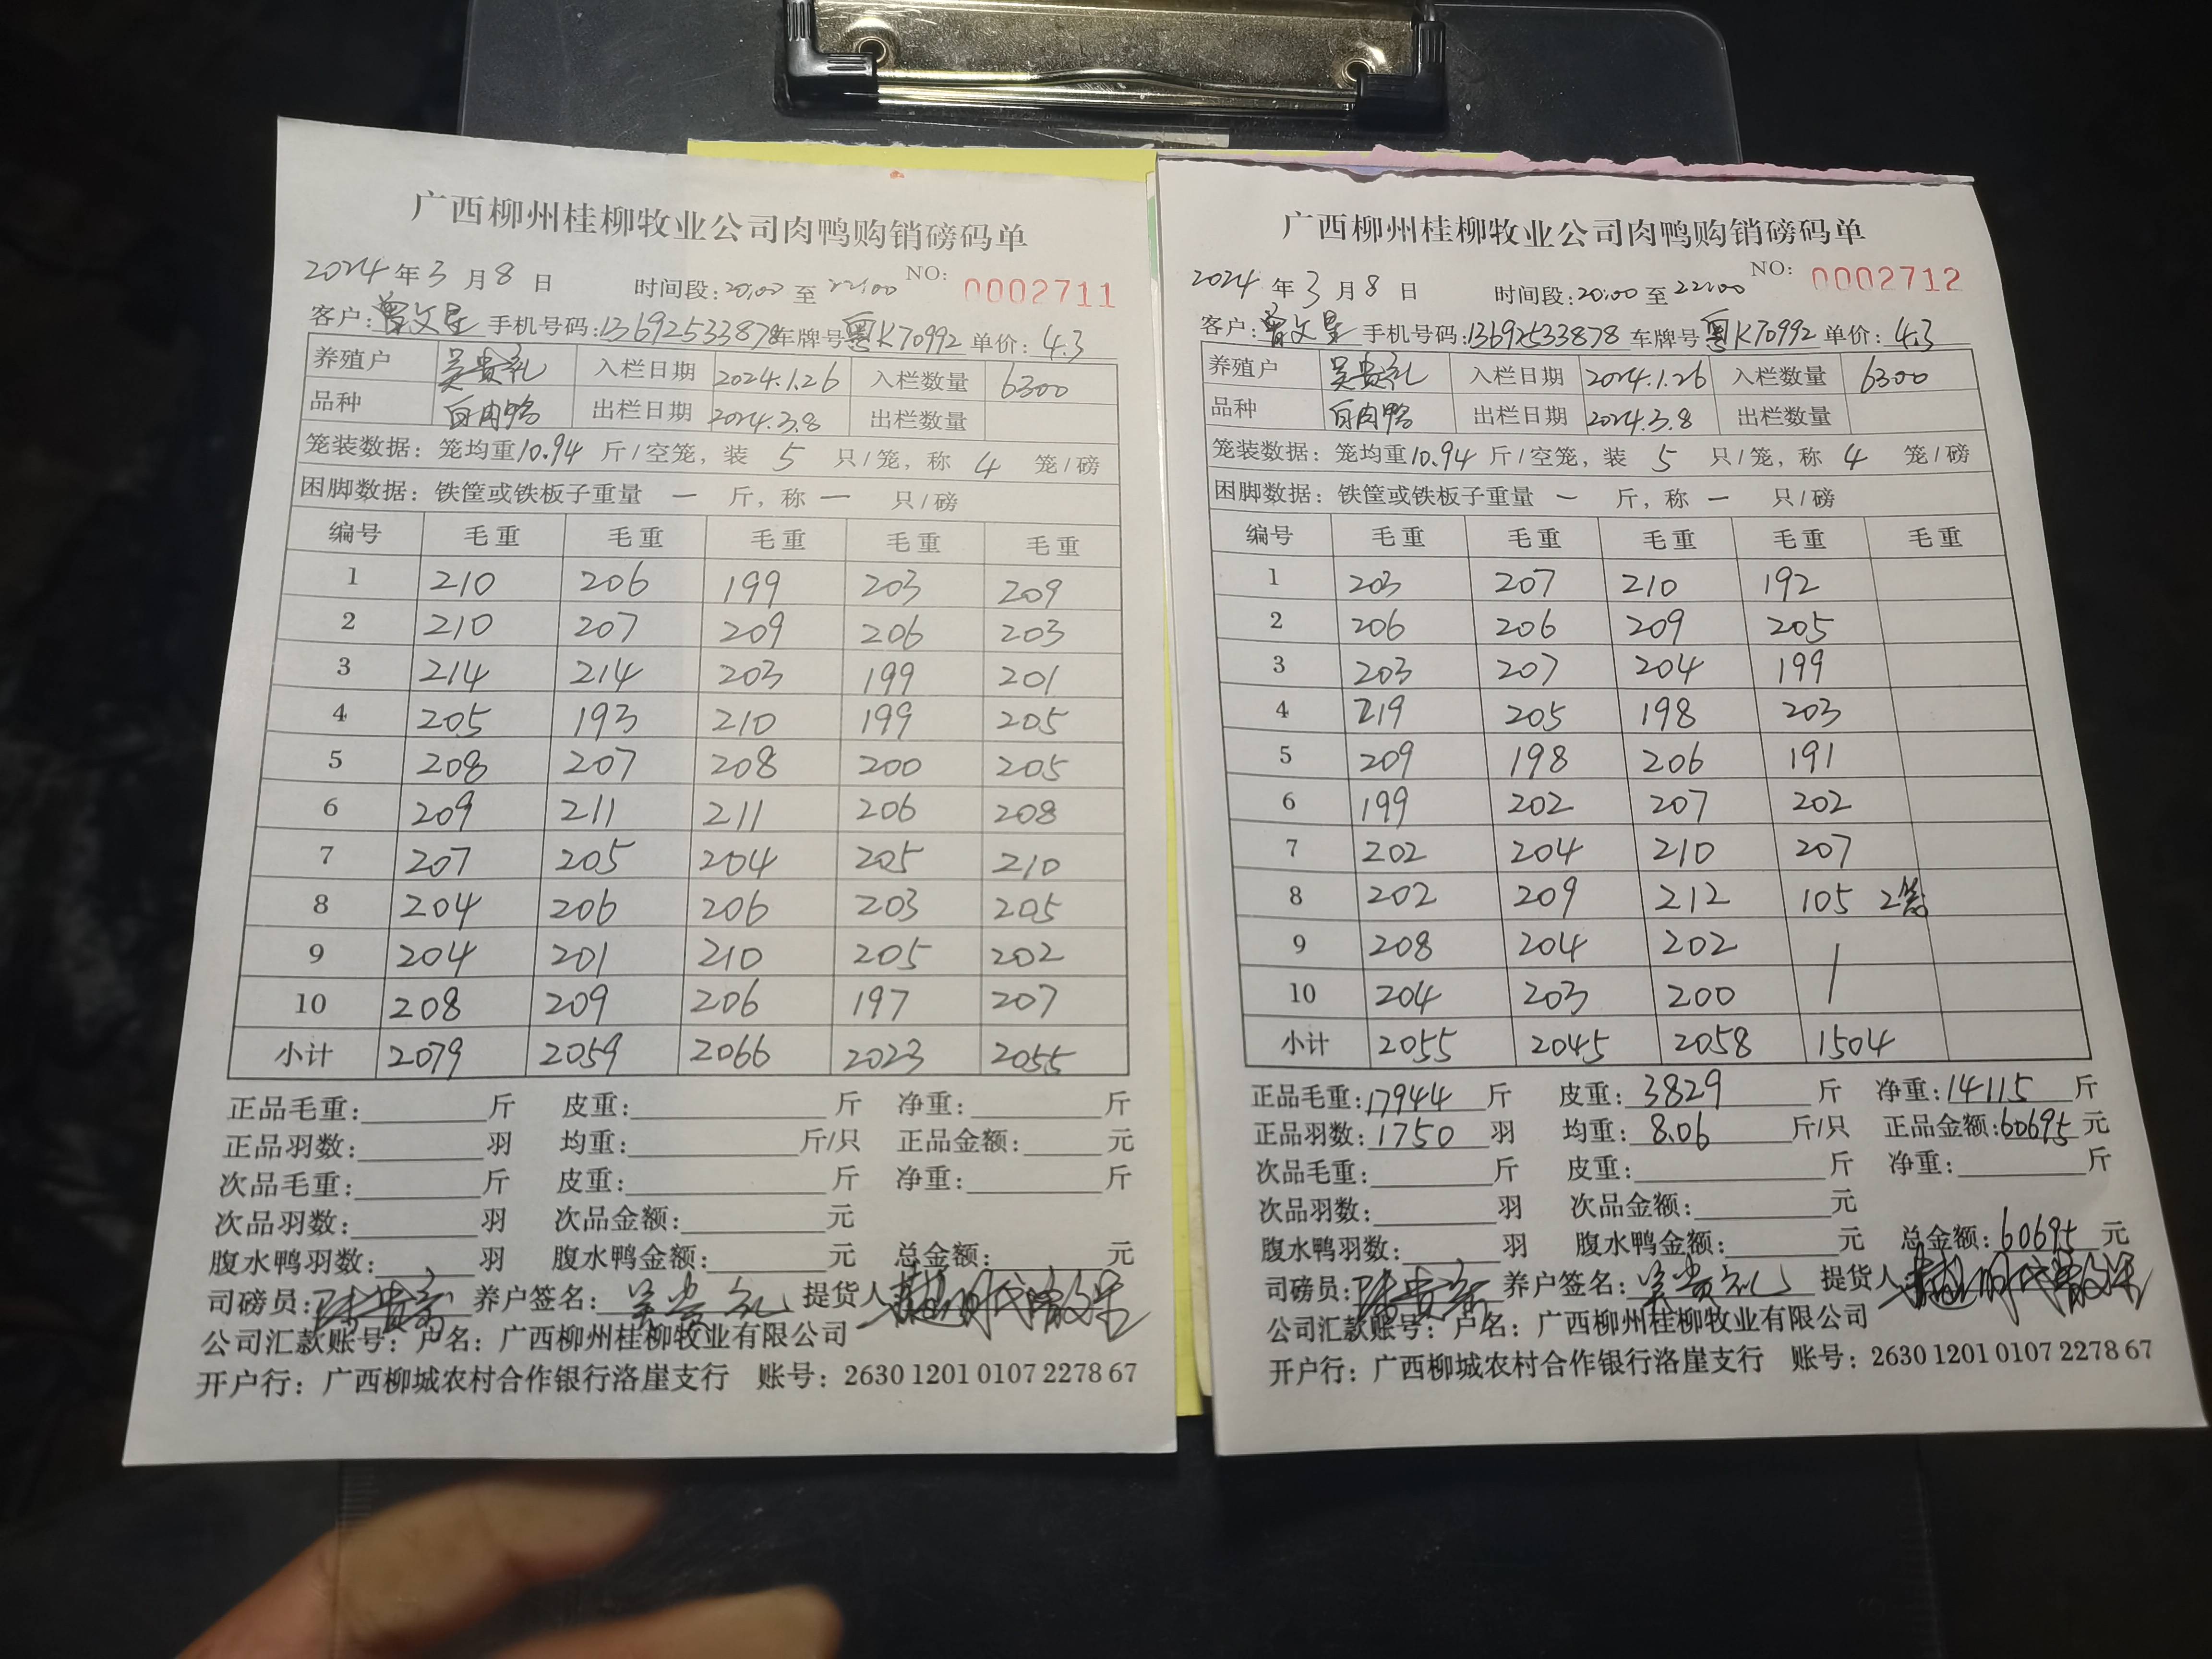 广西柳州桂柳牧业公司肉鸭购销磅码单
2024年3月8日 时间段:20:00至22:00 NO: 0002711
客户:曾文星 手机号码:13692533878 车牌号粤K70992 单价:4.3
养殖户 吴贵礼 入栏日期 2024.1.26 入栏数量 6300
品种 白肉鸭 出栏日期 2024.3.8 出栏数量
笼装数据:笼均重10.94斤/空笼,装5只/笼,称4笼/磅
困脚数据:铁筐或铁板子重量 一 斤,称 一 只/磅
编号 毛重 毛重 毛重 毛重 毛重
1 210 206 199 203 209
2 210 207 209 206 203
3 214 214 203 199 201
4 205 193 210 199 205
5 208 207 208 200 205
6 209 211 211 206 208
7 207 205 204 205 210
8 204 206 206 203 205
9 204 201 210 205 202
10 208 209 206 197 207
小计 2079 2059 2066 2023 2055
正品毛重:斤 皮重:斤 净重:斤
正品羽数:羽 均重:斤/只 正品金额:元
次品毛重:斤 皮重:斤 净重:斤
次品羽数:羽 次品金额:元
腹水鸭羽数:羽 腹水鸭金额:元 总金额:元
司磅员: 养户签名:吴贵礼 提货人
公司汇款账号:户名:广西柳州桂柳牧业有限公司
开户行:广西柳城农村合作银行洛崖支行 账号:2630 1201 0107 2278 67
广西柳州桂柳牧业公司肉鸭购销磅码单
2024年3月8日 时间段:20:00至22:00 NO: 0002712
客户:曾文星 手机号码:13692533878 车牌号粤K70992 单价:4.3
养殖户 吴贵礼 入栏日期 2024.1.26 入栏数量 6300
品种 白肉鸭 出栏日期 2024.3.8 出栏数量
笼装数据:笼均重10.94斤/空笼,装5只/笼,称4笼/磅
困脚数据:铁筐或铁板子重量 一 斤,称 一 只/磅
编号 毛重 毛重 毛重 毛重 毛重
1 203 207 210 192
2 206 206 209 205
3 203 207 204 199
4 219 205 198 203
5 209 198 206 191
6 199 202 207 202
7 202 204 210 207
8 202 209 212 105 2笼
9 208 204 202
10 204 203 200
小计 2055 2045 2058 1504
正品毛重:17944斤 皮重:3829斤 净重:14115斤
正品羽数:1750羽 均重:8.06斤/只 正品金额:60695元
次品毛重:斤 皮重:斤 净重:斤
次品羽数:羽 次品金额:元
腹水鸭羽数:羽 腹水鸭金额:元 总金额:60695元
司磅员: 养户签名:吴贵礼 提货人
公司汇款账号:户名:广西柳州桂柳牧业有限公司
开户行:广西柳城农村合作银行洛崖支行 账号:2630 1201 0107 2278 67